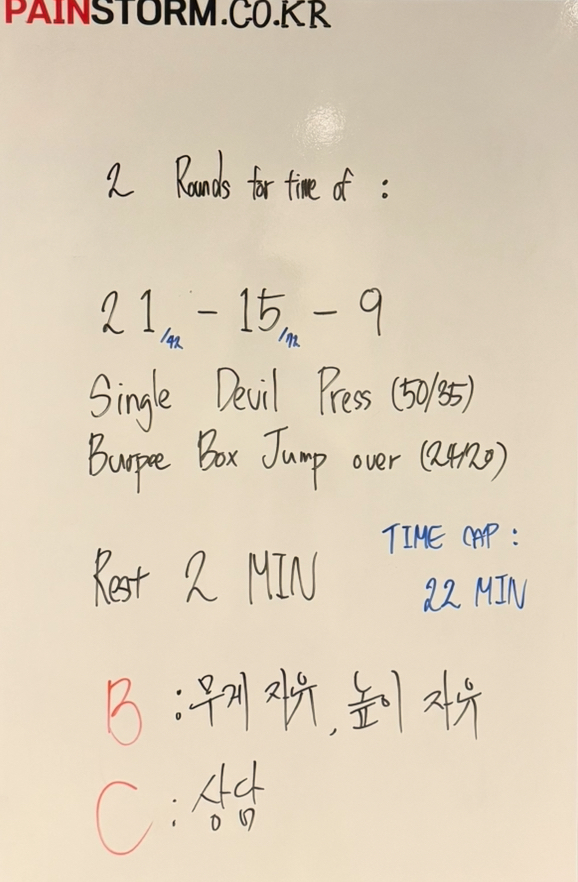 PAINSTORM.CO.KR
2 Rounds for time of :
21 /42 - 15 /72 - 9
Single Devil Press (50/35)
Burpee Box Jump over (24/20)
Rest 2 MIN
TIME CAP :
22 MIN
B : 무게 자유, 높이 자유
C : 상담